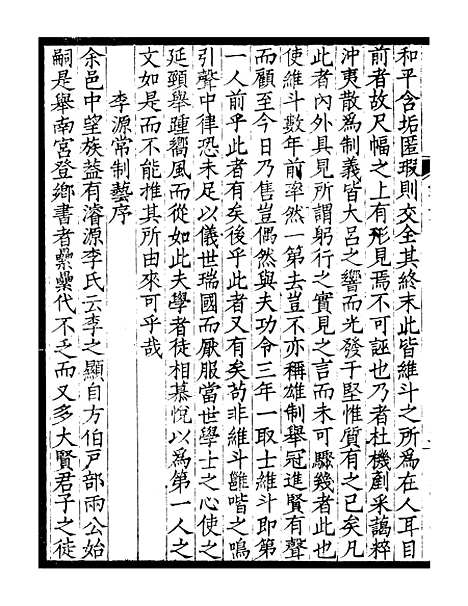 和平含垢匿瑕則交全其終末此皆維斗之所為在人耳目
前者故尺幅之上有形見焉不可誣也乃者杜機剷采藹粹
沖夷散為制義皆大呂之響而光發于堅惟質有之已矣凡
此者內外具見所謂躬行之實見之言而未可驟幾者此而
使維斗數年前率然一第去豈不亦稱雄制舉冠進賢有聲
而顧至今日乃售豈偶然與夫功令三年一取士維斗即第
一人前乎此者有矣後乎此者又有矣苟非維斗雝喈之鳴
引聲中律恐未足以儀世瑞國而厭服當世學士之心使之
延頸舉踵嚮風而從如此夫學者徒相慕悅以為第一人之
文如是而不能推其所由來可乎哉
李源常制藝序
余邑中望族益有濬源李氏云李之顯自方伯戶部兩公始
嗣是舉南宮登鄉書者纍纍代不乏而又多大賢君子之徒